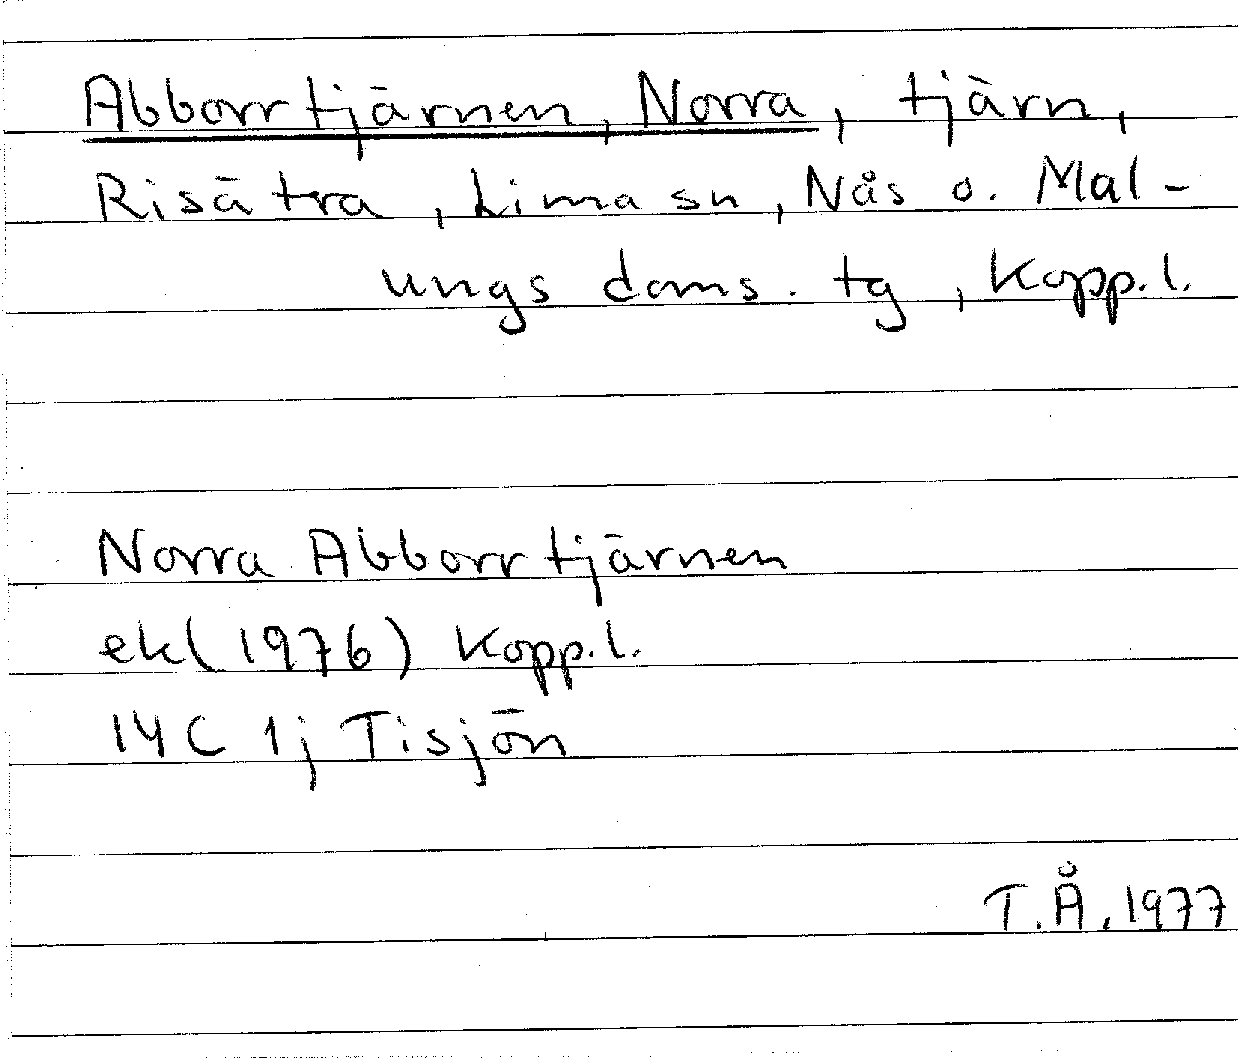 Abborrtjärnen, Norra, tjärn,
Risätra, Lima sn, Nås o. Mal-
ungs doms. tg, Kopp.l.
Norra Abborrtjärnen
ek (1976) Kopp.l.
14C 1j Tisjön
T.Å. 1977